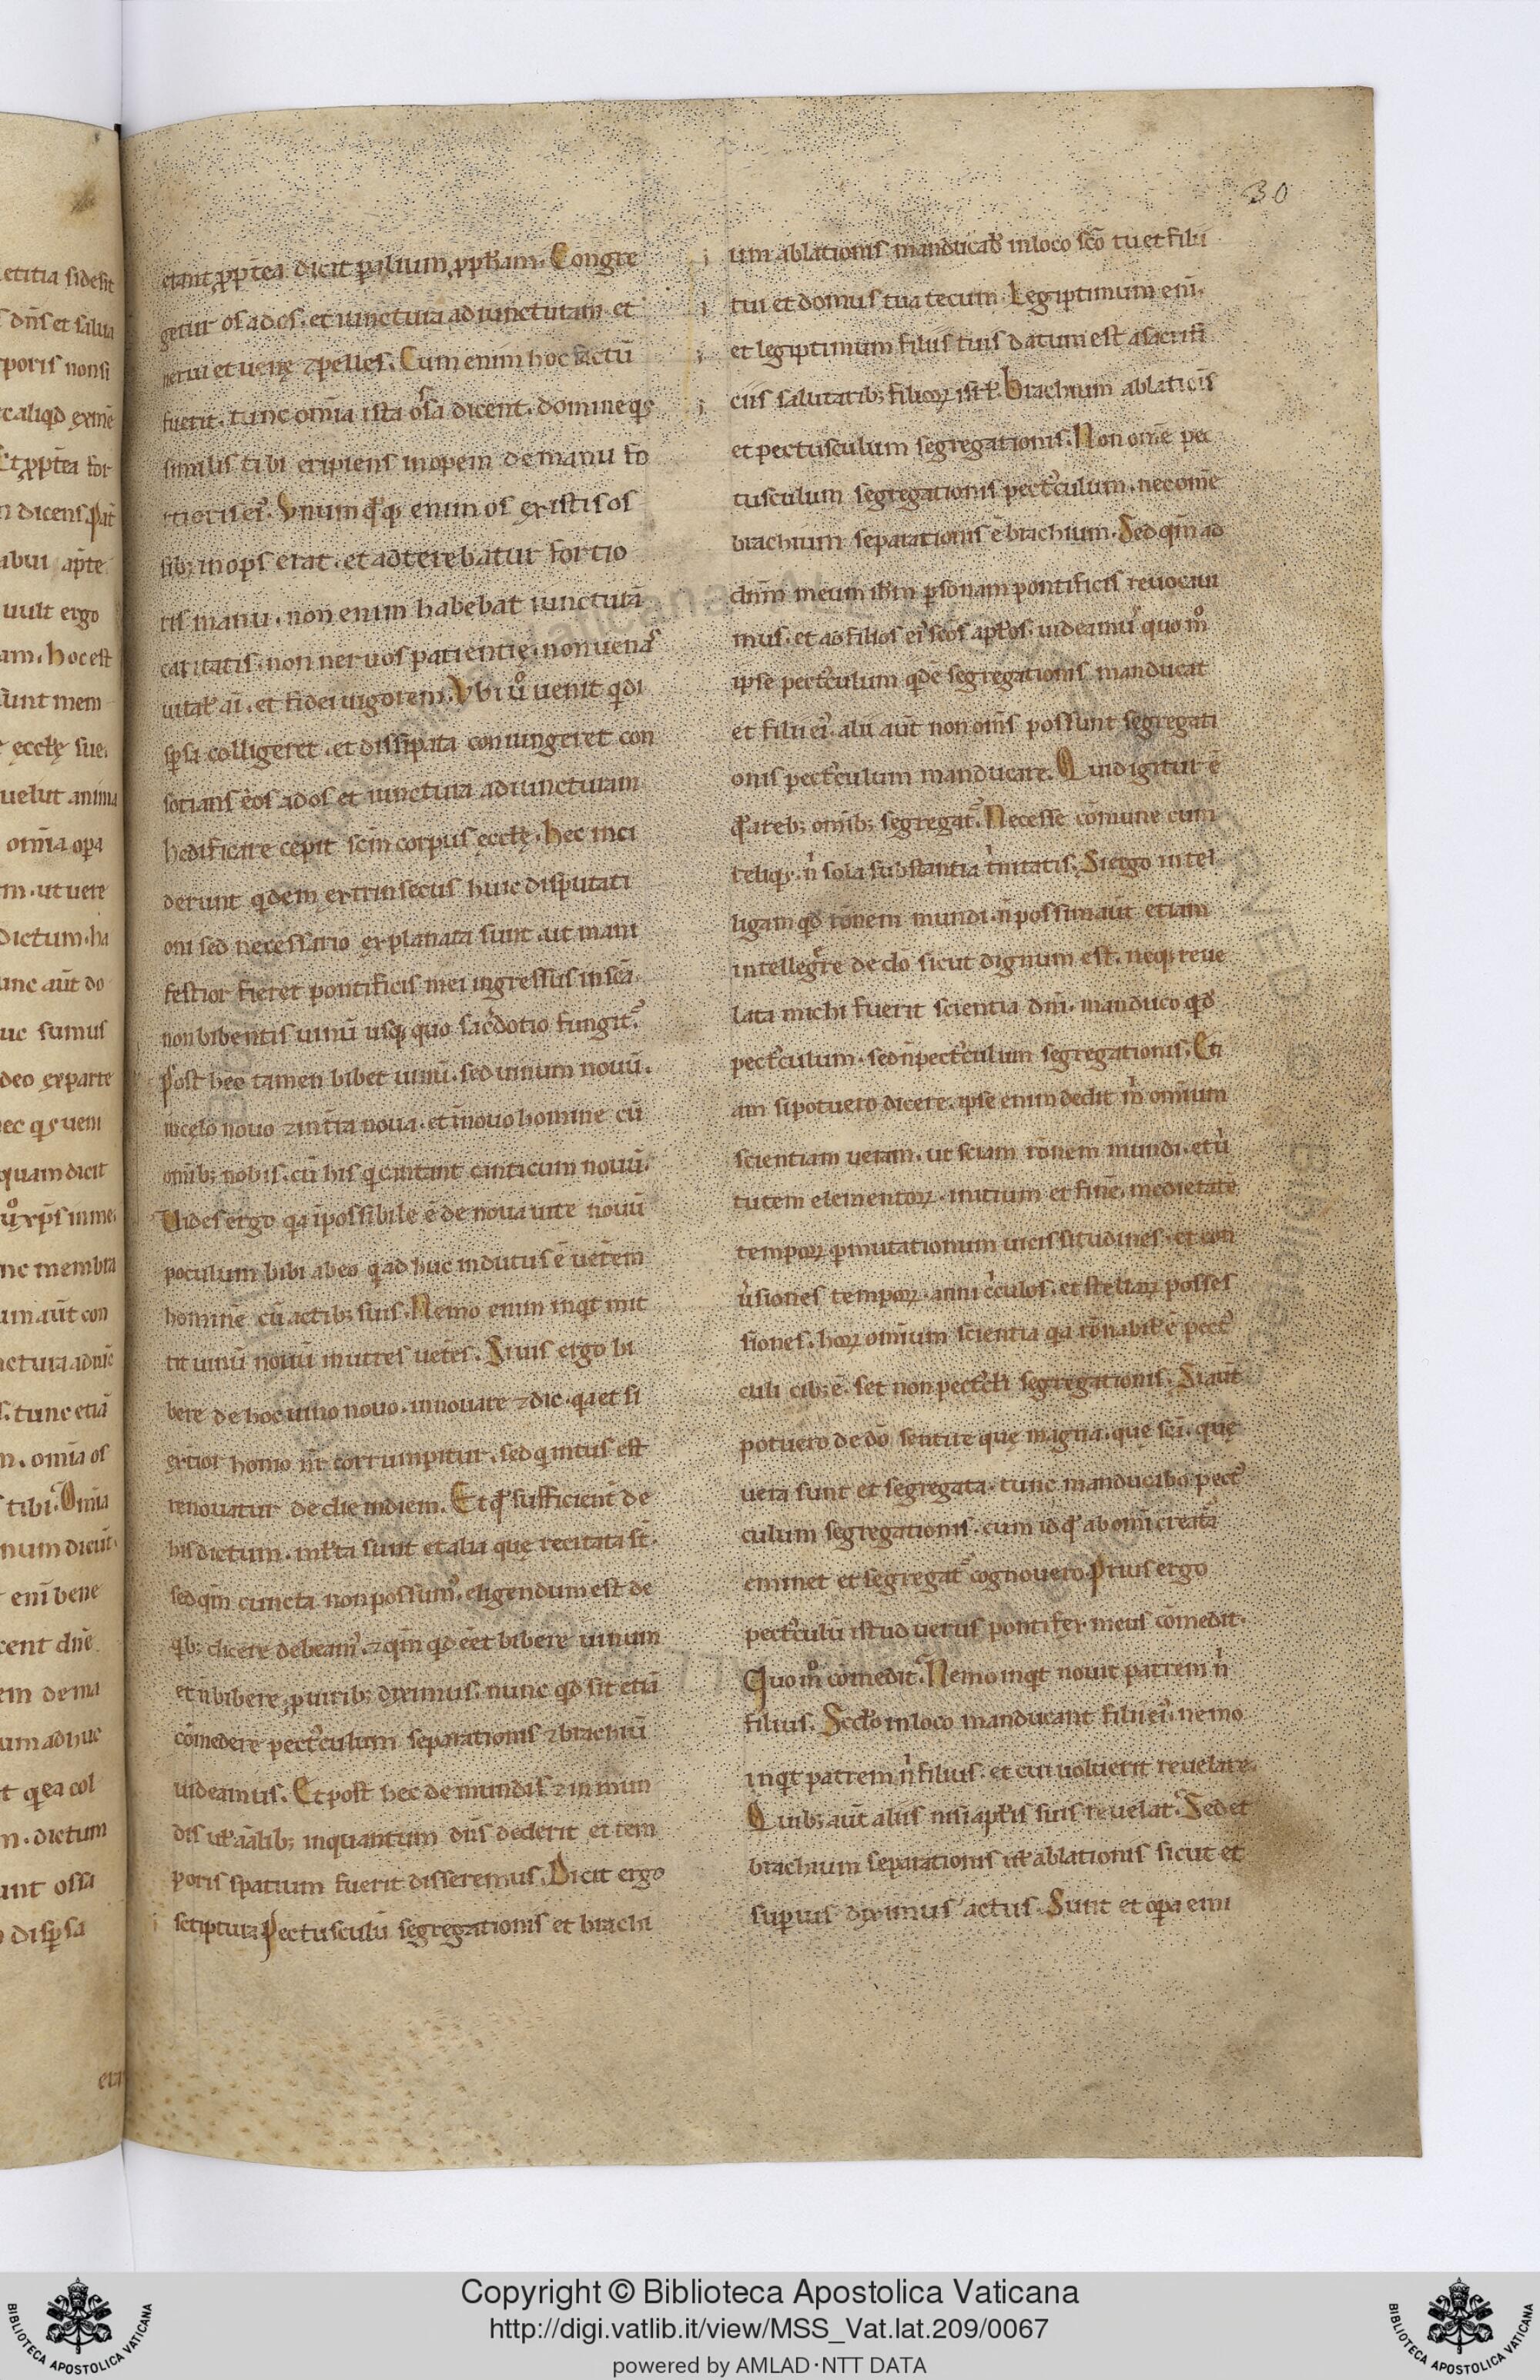 etitia si desit
dn̄s et salua
poris non si
caliqd exinē
Et ꝓpt̄ea for
n dicens Pat̄
abui ap̄te
uult ergo
am. hoc est
sunt mem
ęcclę sue.
uelut anima
om̄ia opa
m. ut uere
dictum. ha
unc aūt do
uc sumus
deo exparte
ec qs ueni
quam dicit
xp̄s in me
nc membra
um aūt con
nctura ad iūc
. tunc etiā
n. om̄ia os
tibi. Om̄ia
num dicūt.
enī bene
cent dn̄e
em de ma
um adhuc
t q ea col
m. dictum
unt ossa
dispsa
era
30
erant ꝓpt̄ea dicit p alium ꝓph̄am. Congre
getur os ad os. et iunctura ad iuncturam. et
nerui et uenę ⁊ pelles. Cum enim hoc factū
fuerit. tunc om̄ia ista ossa dicent. domine qs
similis tibi eripiens inopem de manu fo
rtioris ei᾽. Vnumqdq; enim os ex istis os
sib; inops erat. et adterebatur fortio
ris manu. non enim habebat iuncturā
caritatis. non neruos patientię. non uenas
uital̄ aī. et fidei uigorem. Vbi ů uenit q di
spsa colligeret. et dissipata coniungeret con
socians os ad os et iunctura ad iuncturam
hedificare cepit sc̄m corpus ęcclę. hec inci
derunt qdem extrinsecus huic disputati
oni sed necessario explanata sunt ut mani
festior fieret pontificis mei ingressus in sc̄a.
non bibentis uinū usq; quo sac̄dotio fungit᾽.
Post hec tamen bibet uinū. sed uinum nouū.
in celo nouo ⁊ in t̄ra noua. et ī nouo homine cū
om̄ib; nobis. cū his q cantant canticum nouū.
Vides ergo qa īpossibile ē de noua uite nouū
poculum bibi ab eo q ad huc indutus ē uet̄em
hominē cū actib; suis. Nemo enim inqt mit
tit uinū nouū in utres uet̄es. Si uis ergo bi
bere de hoc uino nouo. innouare ⁊ dic. qa et si
ext̄ior homo nr̄ corrumpitur. sed q intus est
renouatur de die in diem. Et qd sufficient̄ de
his dictum. ml̄ta sunt et alia quę recitata st̄.
sed qm̄ cuncta non possum᾽. eligendum est de
qb; dicere debeam᾽. ⁊ qm̄ qd eēt bibere uinum
et n̄ bibere ꝓ uirib; diximus. nunc qd sit etiā
cōmedere pect᾽culum separationis ⁊ brachiū
uideamus. Et post hec de mundis ⁊ inmun
dis ul̄ aālib; inquantum dn̄s dederit et tem
poris spatium fuerit disseremus. Dicit ergo
scriptura Pectusculū segregationis et brachi
um ablationis manducab̄ in loco sc̄o tu et filii
tui et domus tua tecum. Legiptimum enī.
et legiptimum filiis tuis datum est a sacrifi
ciis salutarib; filioꝝ isrl̄. brachium ablationis
et pectusculum segregationis. Non om̄e pec
tusculum segregationis pect᾽culum. nec om̄e
brachium separationis ē brachium. Sed qm̄ ad
dn̄m meum ih̄m psonam pontificis reuocaui
mus. et ad filios ei᾽ sc̄os apl̄os. uideam᾽ quo m̊
ipse pect᾽culum qdē segregationis manducat
et filii ei᾽. alii aūt non om̄s possunt segregati
onis pect᾽culum manducare. Quid igitur ē
qd a reb; om̄ib; segregat᾽. Necesse cōmune cum
reliqs. n̄ sola substantia t̄nitatis. Si ergo intel
ligam qd rōnem mundi. n̄ possim aūt etiam
intellegere de d̄o sicut dignum est. neq; reue
lata michi fuerit scientia dn̄i. manduco qdē
pect᾽culum. sed n̄ pect᾽culum segregationis. Eti
am si potuero dicere. ipse enim dedit m̄ om̄ium
scientiam ueram. ut sciam rōnem mundi. et ů
tutem elementoꝝ. initium et finē. medietatē
tempoꝝ pmutationum uicissitudines. et con
ůsiones tempoꝝ. anni c̄culos. et stellaꝝ posses
siones. hoꝝ om̄ium scientia qa rōnabil̄ ē pect᾽
culi cib; ē. set non pect᾽cli segregationis. Si aūt
potuero de d̄o sentire quę magna. quę sc̄a. quę
uera sunt et segregata. tunc manducabo pect᾽
culum segregationis. cum id qd ab om̄i creat̄a
eminet et segregat᾽ cognouero. Prius ergo
pect᾽culū istud uerus pontifex meus cōmedit.
Quo m̊ cōmedit. Nemo inqt nouit patrem n̄
filius. Sec̄do in loco manducant filii ei᾽. nemo
inqt patrem n̄ filius. et cui uoluerit reuelare.
Quib; aūt aliis nisi apl̄is suis reuelat. Sed et
brachium separationis ul̄ ablationis sicut et
superius diximus actus. Sunt et opa eni
Copyright © Biblioteca Apostolica Vaticana
http://digi.vatlib.it/view/MSS_Vat.lat.209/0067
powered by AMLAD·NTT DATA
BIBLIOTECA APOSTOLICA VATICANA
BIBLIOTECA APOSTOLICA VATICANA